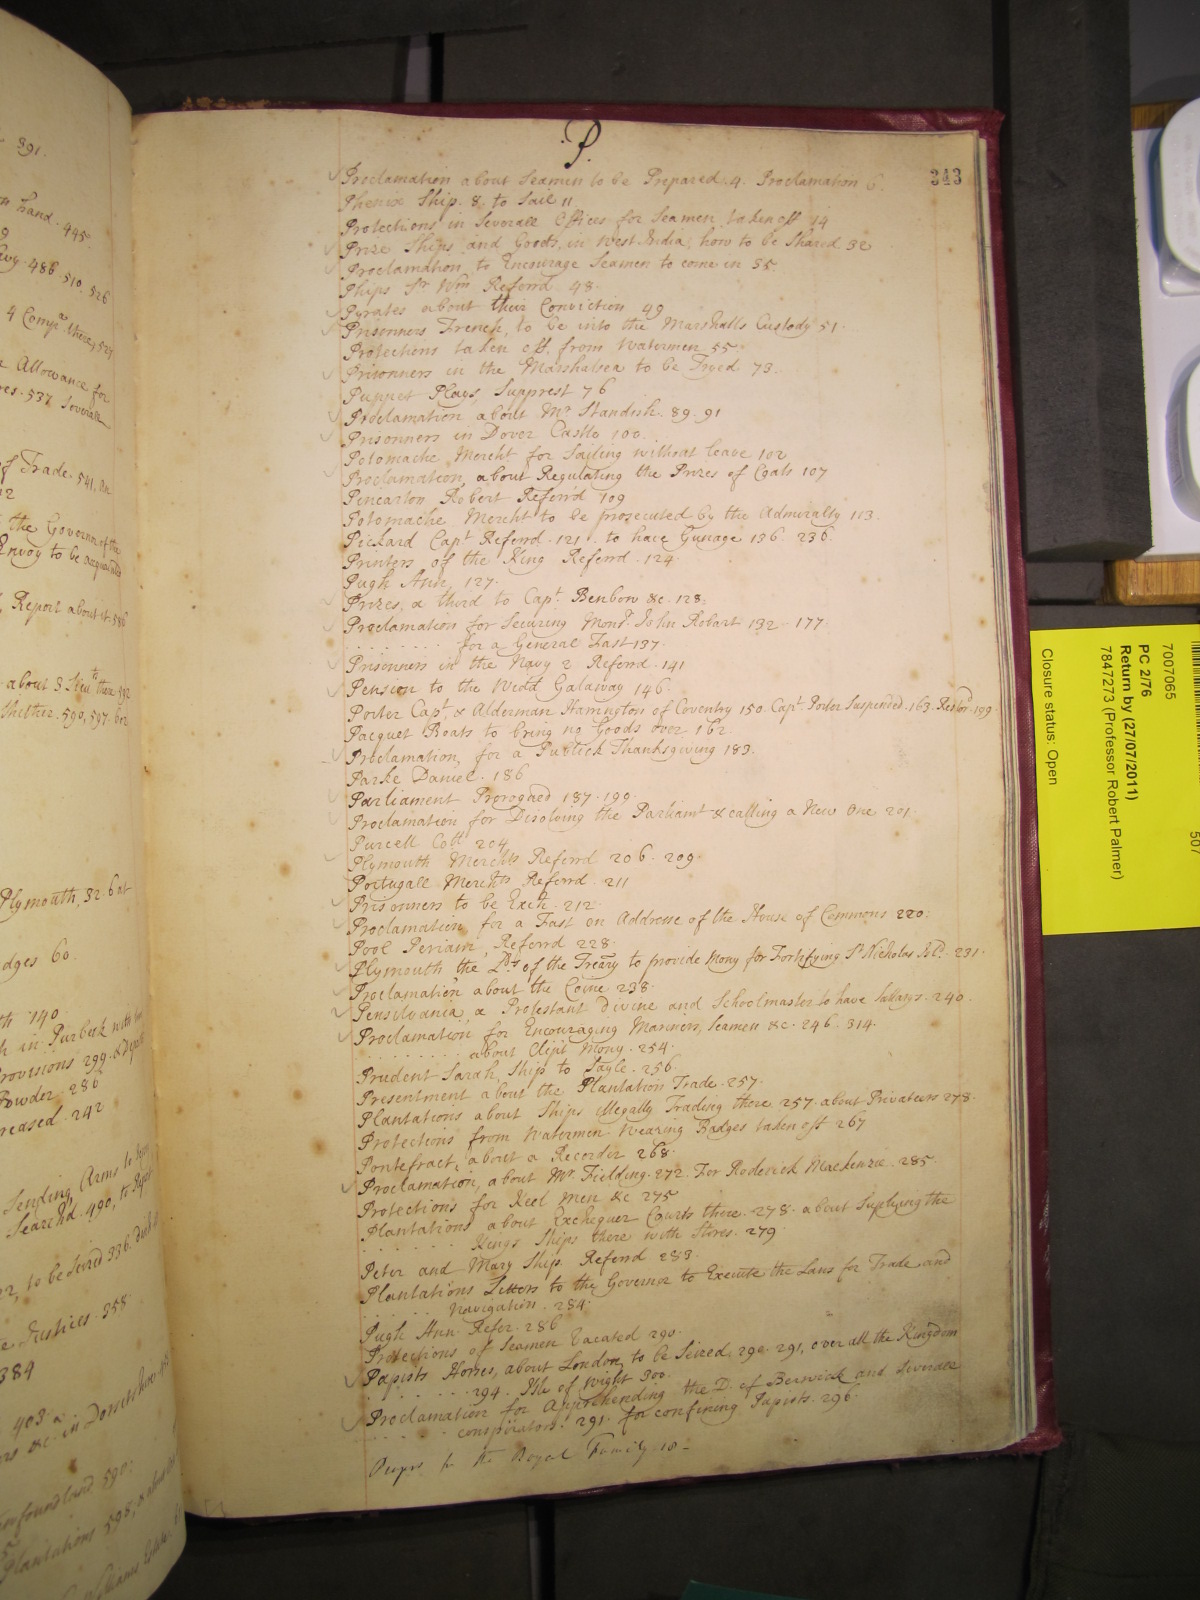 P.
343
Proclamation about Seamen to be Prepared. 4. Proclamation 6.
Phenix Ship. 8. to Sail 11
Protections in Severall Offices for Seamen taken off 14
Prize Ships and Goods, in West India, how to be Shared 32
Proclamation, to Encourage Seamen to come in 35.
Phips Sr Wm Referrd 48.
Pyrates about their Conviction 49
Prisonners French, to be into the Marshalls Custody 51.
Protections taken off, from Watermen 55
Prisonners in the Marshalsea to be Tryed 73.
Puppet Plays, Supprest 76
Proclamation about Mr Standish. 89. 91
Prisonners in Dover Castle 100.
Potomache Mercht for Sailing without leave 102
Proclamation, about Regulating the Prizes of Coals 107
Robert Referrd 109
Potomache Mercht to be prosecuted by the Admiralty 113.
Pickard Capt Referrd. 121. to have Gunage 136. 236.
Printers of the King Referrd. 124.
Pugh Ann, 127.
Prizes, a third to Capt. Benbow &c. 128.
Proclamation for Securing Monsr. John Robart 132. 177.
. . . . . . . . for a General Fast 137.
Prisonners in the Navy 2 Referrd. 141
Pension to the Wedd Galaway 146.
Porter Capt. & Alderman Harrington of Coventry 150. Capt. Porter Suspended. 163. Restor'd 199.
Pacquet Boats to bring no Goods over 162.
Proclamation, for a Publick Thanksgiving 183.
Parke Daniel. 186
Parliament Prorogued 187. 199.
Proclamation for Disolving the Parliamt & calling a New One 201
Purcell Coll 204
Plymouth Merchts Referrd 206. 209.
Portugall Merchts Referrd. 211
Prisonners to be Exch. 212.
Proclamation, for a Fast on Addresse of the House of Commons 220.
Pool Periam, Referrd 228.
Plymouth the Lds of the Treary to provide Mony for Fortifying St Nicholas Isld. 231.
Proclamation about the Coine 238.
Pensilvania, a Protestant Divine and Schoolmaster to have Sallarys. 240.
Proclamation for Encouraging Mariners, Seamen &c. 246. 314.
. . . . . . . . . about Clipt Mony. 254.
Prudent Sarah, Ship to Sayle. 256.
Presentment about the Plantation Trade. 257.
Plantations about Ships illegally Trading there 257. about Privateers 278.
Protections from Watermen. Wearing Badges taken off 267
Pontefract, about a Recorder 268.
Proclamation, about Mr. Fielding. 272. For Roderick Mackenzie. 285.
Protections for Keel Men &c 275
Plantations about Exchequer Courts there. 278. about Suplying the
. . . . . . . Kings Ships there with Stores. 279
Peter and Mary Ship. Referrd 283.
Plantations Letters to the Governor to Execute the Laws for Trade and
. . . . . . Navigation. 284.
Pugh Ann. Refer. 286
Protections of Seamen Vacated 290.
Papists Horses, about London, to be Seized, 290. 291, over all the Kingdom
. . . . . . . . 294. Isle of Wight 300.
Proclamation for Apprehending the D. of Berwick and Severall
. . . . . . conspirators. 291. for confining Papists. 296.
the Royal Family 10 -
391.
hand. 445.
486 510. 526
4 Compa. there, 529
Allowance for
537 Severall
of Trade. 541.
the Governor of the
Envoy to be acquainted
Report about it. 586
about 3 there 592
thither. 590, 597.
Plymouth, 32.
60.
140
in Purbeck with
Provisions 299.
Powder. 286
242
Sending Arms to
Search'd. 490, to
to be Seized 336.
Justices. 358.
384
403.
&c. in Dorsetshire.
found land. 590.
Plantations 598.
507
7007065
PC 2/76
Return by (27/07/2011)
7847273 (Professor Robert Palmer)
Closure status: Open